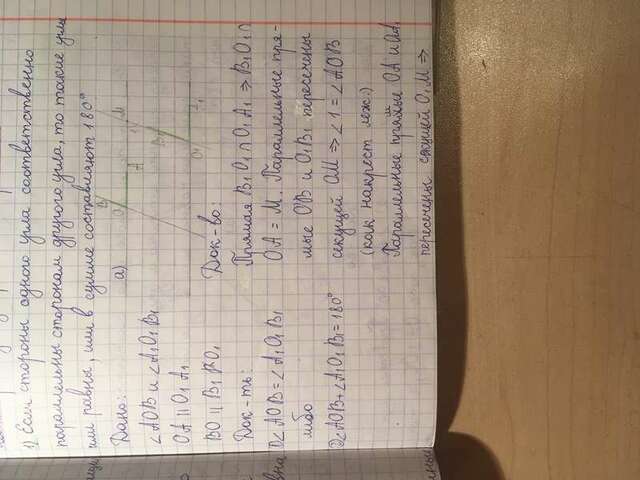 1) Если стороны одного угла соответственно
параллельны сторонам другого угла, то такие углы
или равны, или в сумме составляют 180°
Дано:
∠AOB и ∠A₁O₁B₁
OA || O₁A₁
BO || B₁O₁
Док-ть:
∠AOB = ∠A₁O₁B₁
либо
∠AOB + ∠A₁O₁B₁ = 180°
а)
B
O
A
M
1
B₁
O₁
A₁
Док-во:
Прямая B₁O₁ ∩ O₁A₁ ⇒ B₁O₁ ∩
OA = M. Параллельные пря-
мые OB и O₁B₁ пересечены
секущей OM ⇒ ∠1 = ∠AOB
(как накрест леж.)
Параллельные прямые OA и O₁A₁
пересечены секущей O₁M ⇒